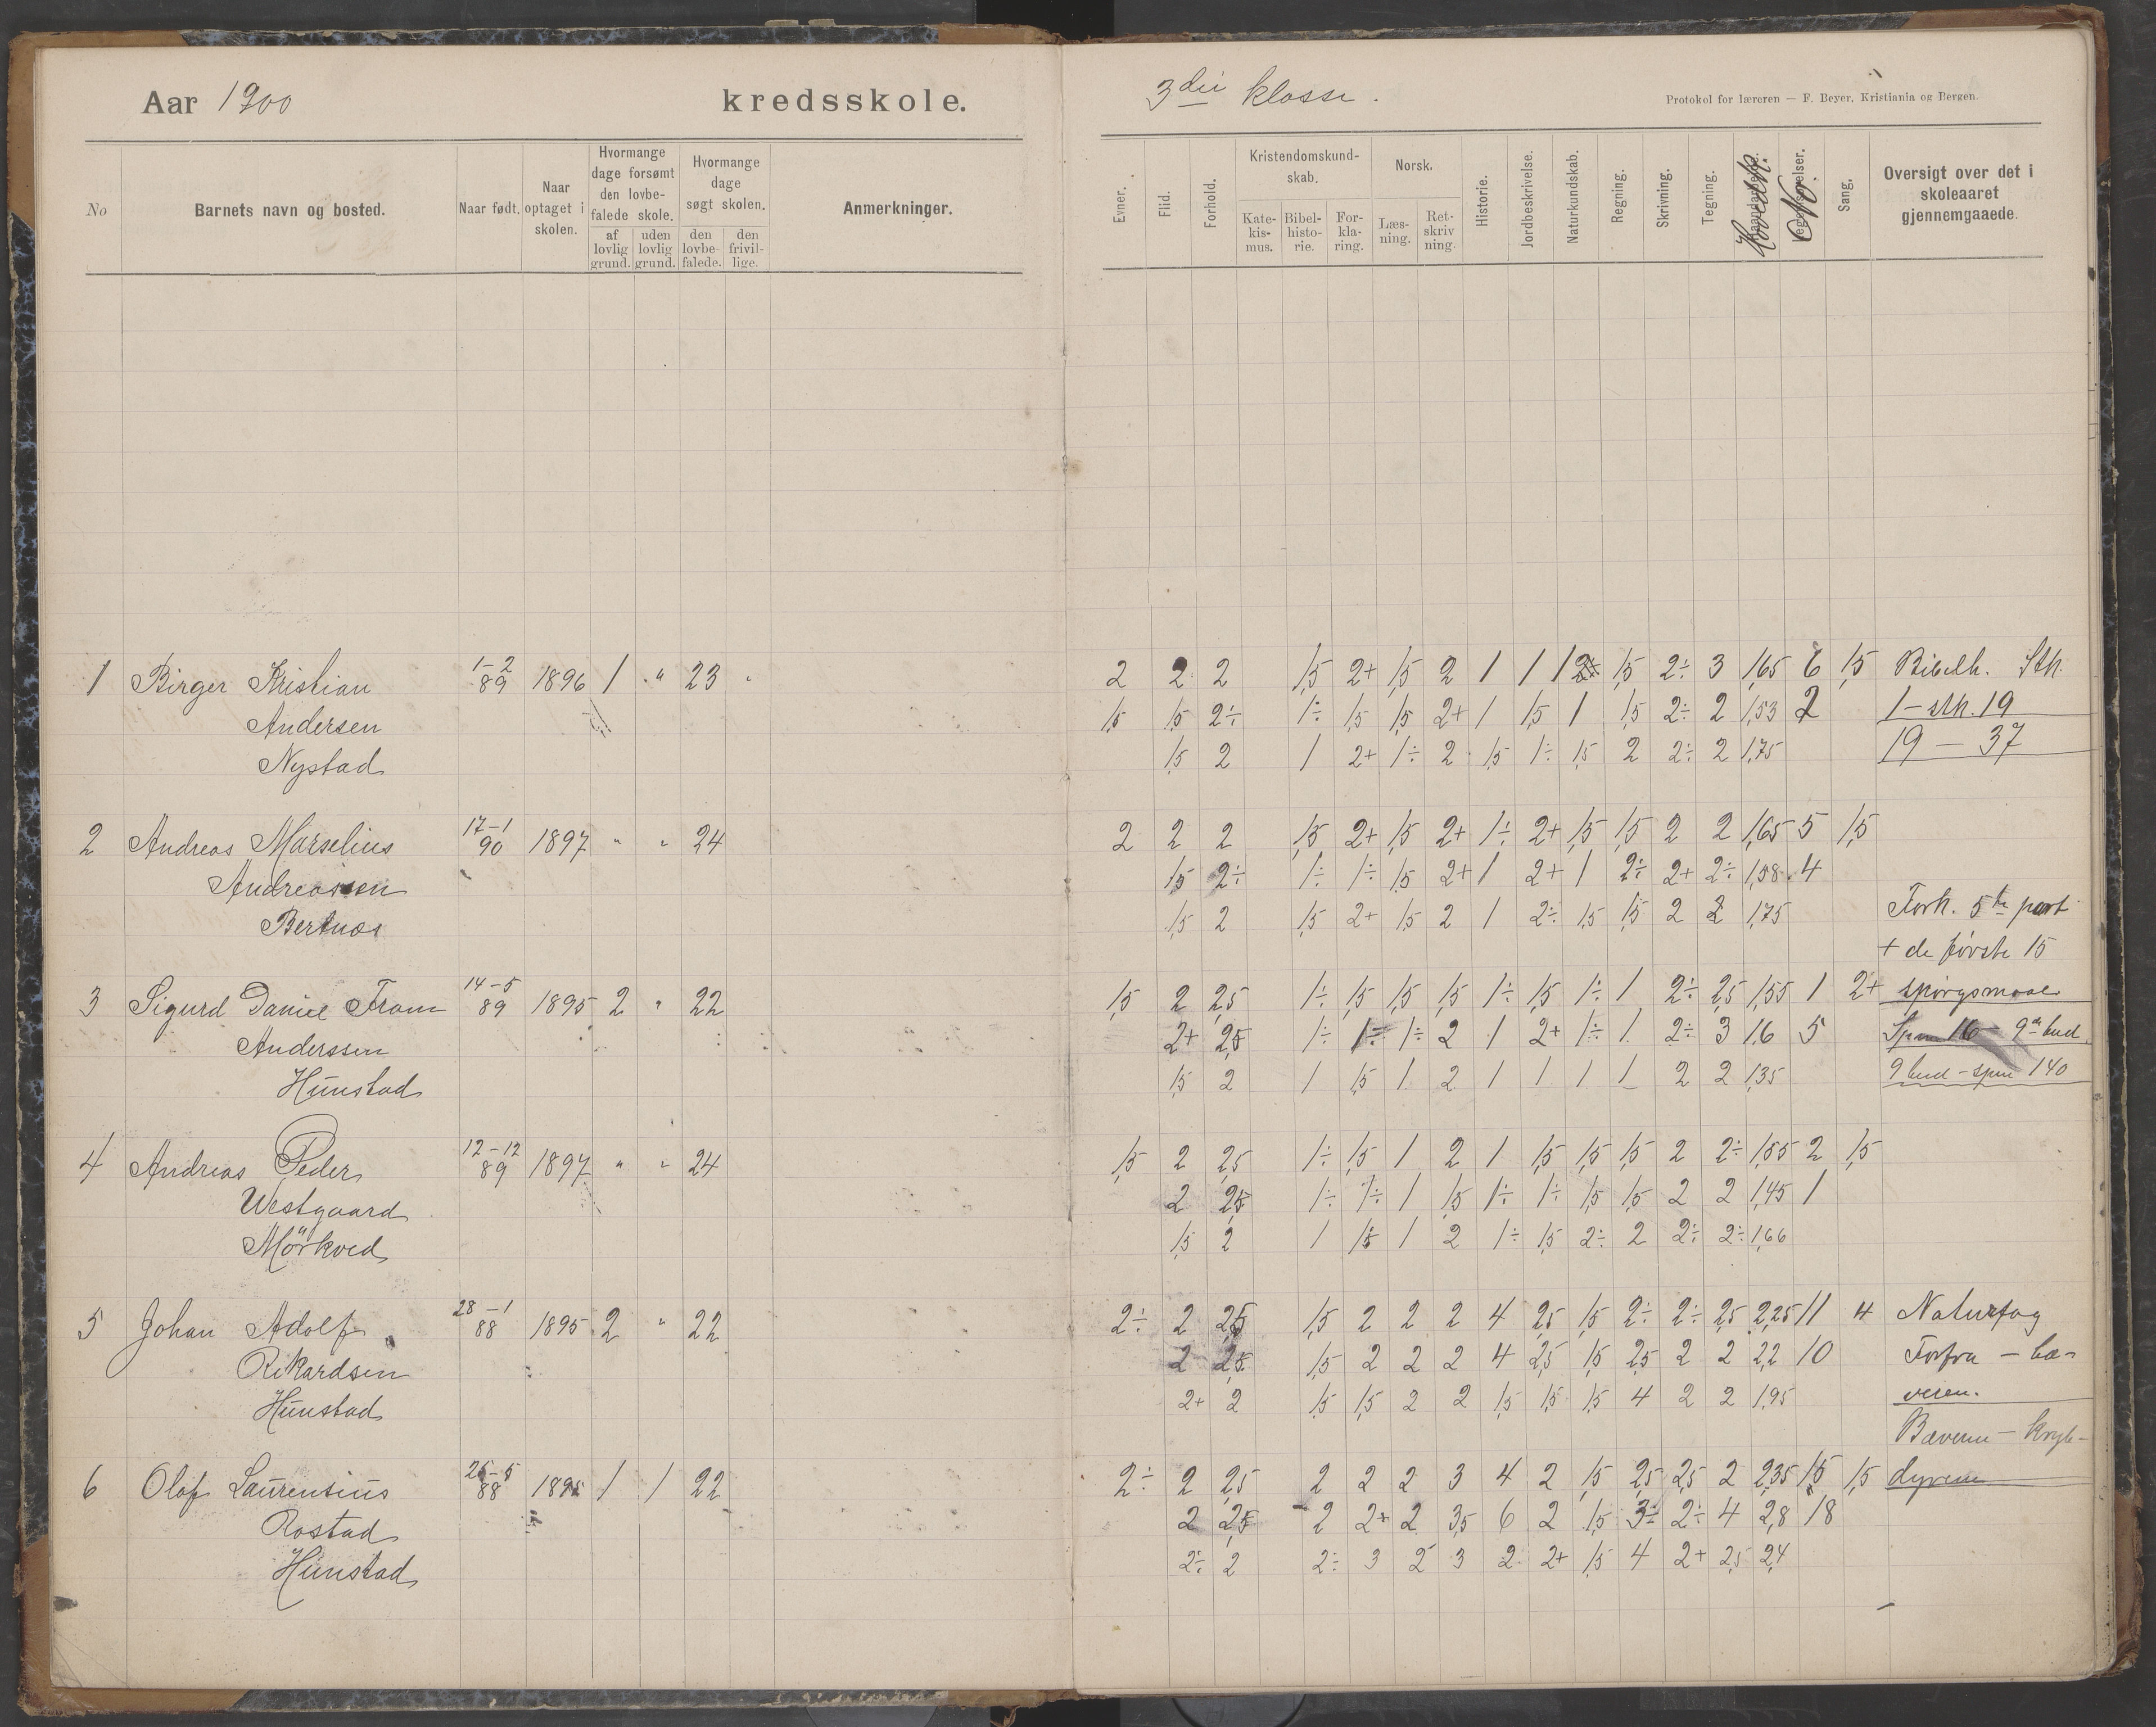 Aar 1900 kredsskole.
3die klasse.
Protokol for læreren — F. Beyer, Kristiania og Bergen.
No
Barnets navn og bosted.
Naar født.
Naar optaget i skolen.
Hvormange dage forsømt den lovbefalede skole.
af lovlig grund.
uden lovlig grund.
Hvormange dage søgt skolen.
den lovbefalede.
den frivillige.
Anmerkninger.
Evner.
Flid.
Forhold.
Kristendomskundskab.
Katekismus.
Bibelhistorie.
Forklaring.
Norsk.
Læsning.
Retskrivning.
Historie.
Jordbeskrivelse.
Naturkundskab.
Regning.
Skrivning.
Tegning.
Hovedk.
No.
Sang.
Oversigt over det i skoleaaret gjennemgaaede.
1 Birger Kristian 1-2 89 1896 1 " 23 " 2 2 2 1,5 2+ 1,5 2 1 1 1 1,5 2÷ 3 1,65 6 1,5 Bibelh. Stk.
Andersen 1,5 1,5 2÷ 1÷ 1,5 1,5 2+ 1 1,5 1 1,5 2÷ 2 1,53 2 1 – stk. 19
Nystad 1,5 2 1 2+ 1÷ 2 1,5 1÷ 1,5 2 2÷ 2 1,75 19 — 37
2 Andreas Marselius 17-1 90 1897 " " 24 2 2 2 1,5 2+ 1,5 2+ 1÷ 2+ 1,5 1,5 2 2 1,65 5 1,5
Andreassen 1,5 2÷ 1÷ 1÷ 1,5 2+ 1 2+ 1 2÷ 2+ 2÷ 1,58 4
Bertnæs 1,5 2 1,5 2+ 1,5 2 1 2÷ 1,5 1,5 2 2 1,75 Fork. 5te part
+ de første 15
3 Sigurd Daniel Fram 14-5 89 1895 2 " 22 1,5 2 2,5 1÷ 1,5 1,5 1,5 1÷ 1,5 1÷ 1 2÷ 2,5 1,55 1 2+ spørgsmaal
Anderssen 2+ 2,5 1÷ 1÷ 1÷ 2 1 2+ 1÷ 1 2÷ 3 1,6 5 Spm 16 – 9de bud
Hunstad 1,5 2 1 1,5 1 2 1 1 1 1 2 2 1,35 9 bud – spm 140
4 Andreas Peder 12-12 89 1897 " " 24 1,5 2 2,5 1÷ 1,5 1 2 1 1,5 1,5 1,5 2 2÷ 1,55 2 1,5
Westgaard 2 2,5 1÷ 1÷ 1 1,5 1÷ 1÷ 1,5 1,5 2 2 1,45 1
Mörkved 1,5 2 1 1,5 1 2 1÷ 1,5 2÷ 2 2÷ 2÷ 1,66
5 Johan Adolf 28-1 88 1895 2 " 22 2÷ 2 2,5 1,5 2 2 2 4 2,5 1,5 2÷ 2÷ 2,5 2,25 11 4 Naturfag
Rikardsen 2 2,5 1,5 2 2 2 4 2,5 1,5 2,5 2 2 2,2 10 Forfra – bæ-
Hunstad 2+ 2 1,5 1,5 2 2 1,5 1,5 1,5 4 2 2 1,95 veren.
Bæveren – kryb-
6 Olaf Laurensius 25-5 88 1895 1 1 22 2÷ 2 2,5 2 2 2 3 4 2 1,5 2,5 2,5 2 2,35 15 1,5 dyrene
Rostad 2 2,5 2 2+ 2 3,5 6 2 1,5 3÷ 2÷ 4 2,8 18
Hunstad 2÷ 2 2÷ 3 2 3 2 2+ 1,5 4 2+ 2,5 2,4